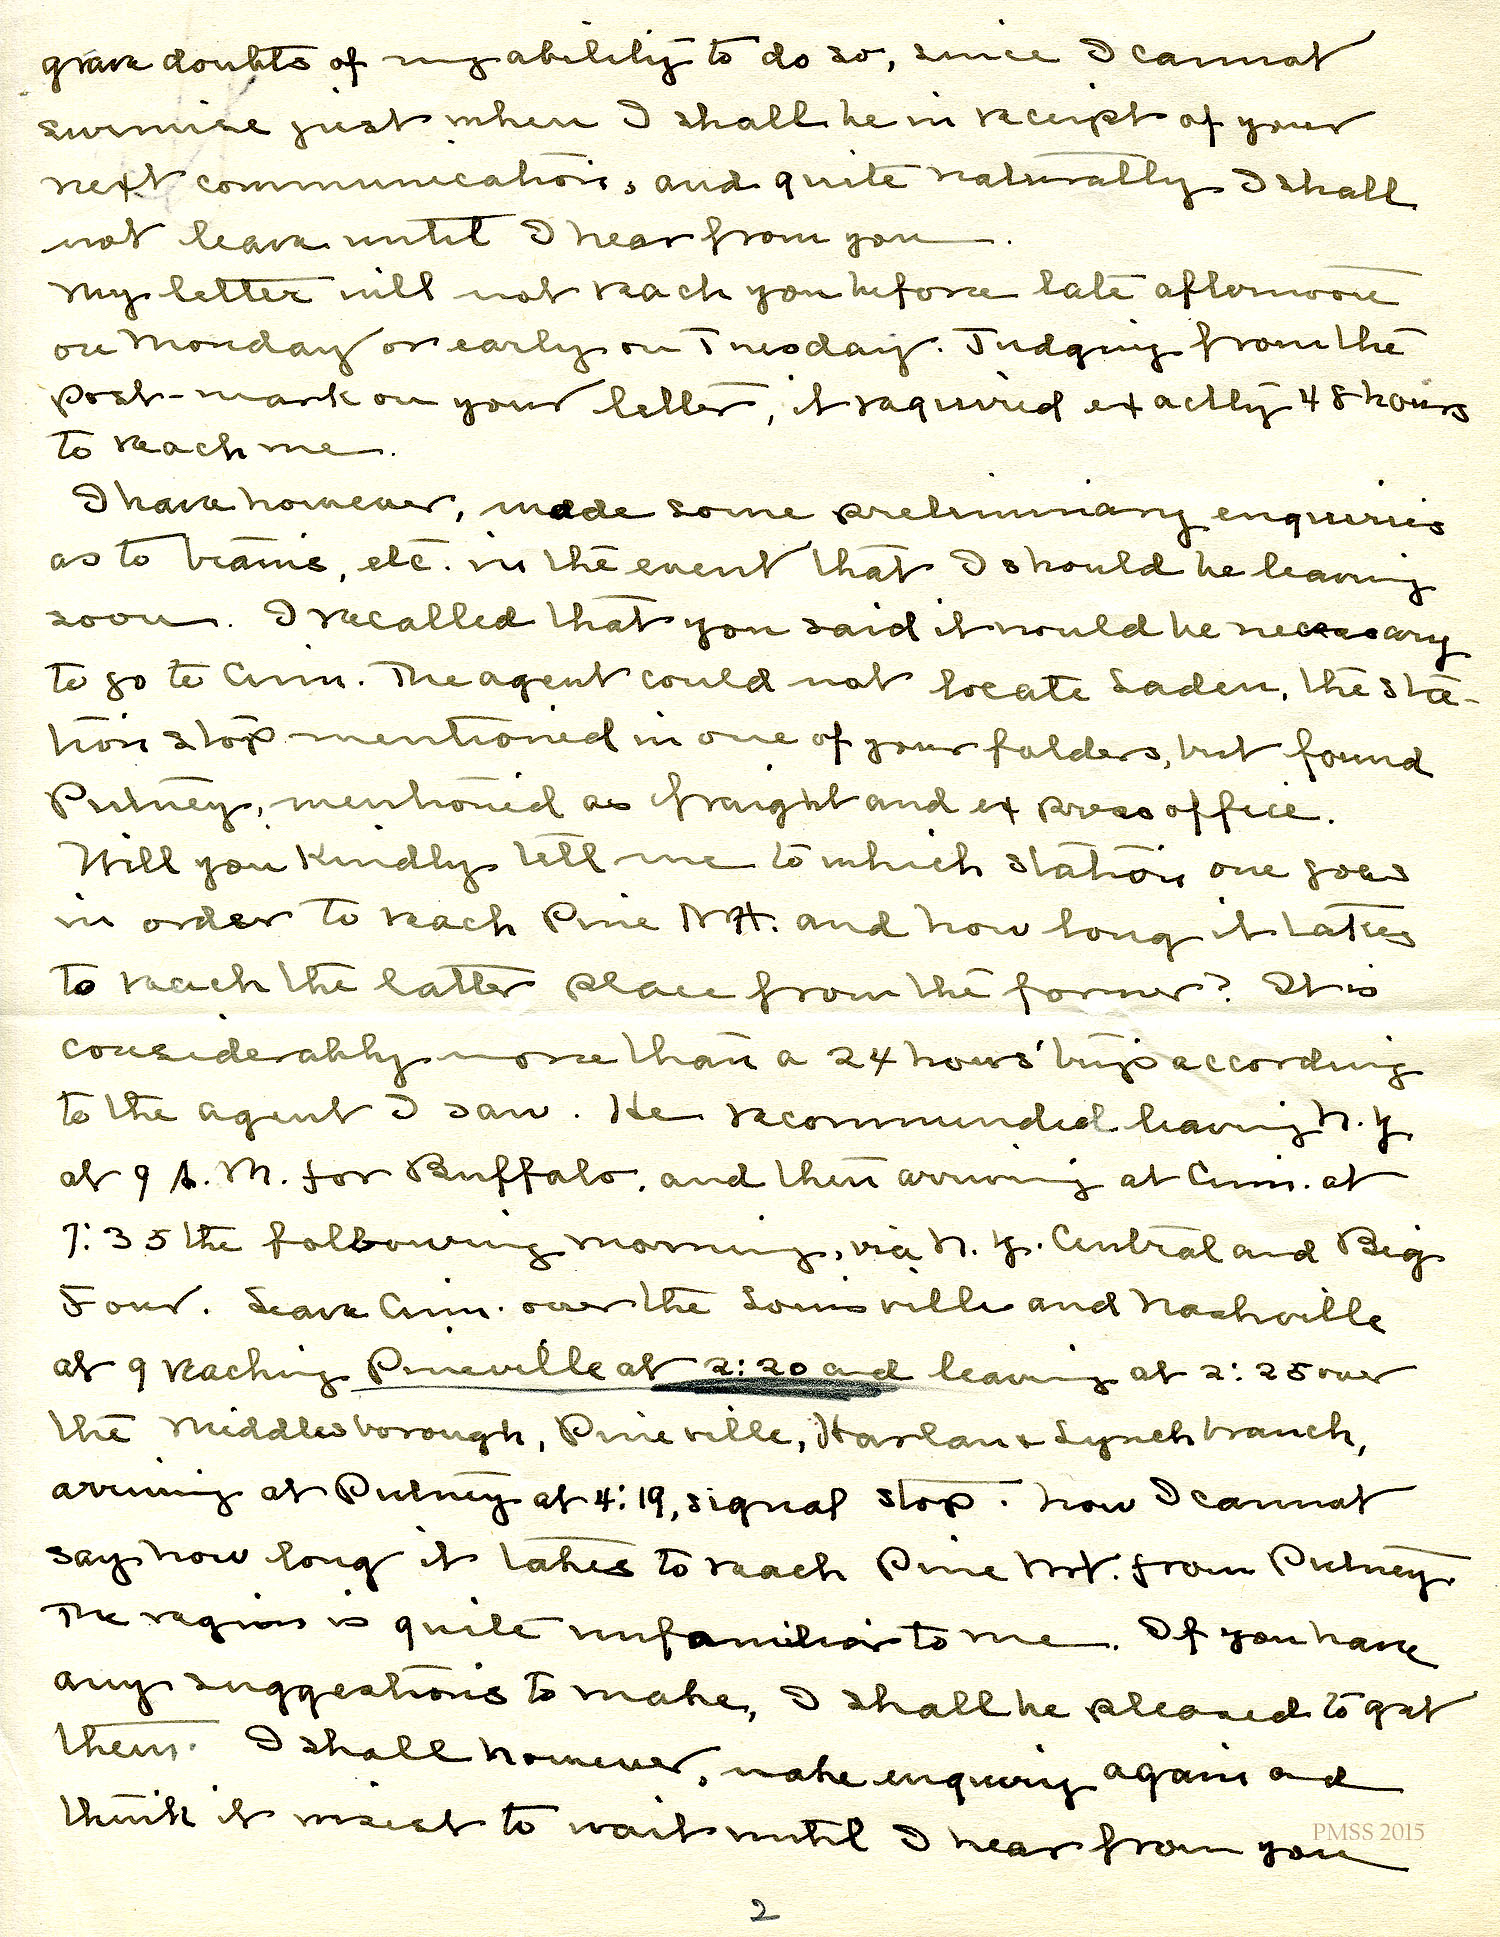 grave doubts of my ability to do so, since I cannot
surmise just when I shall be in receipt of your
next communication, and quite naturally I shall
not leave until I hear from you.
My letter will not reach you before late afternoon
on Monday or early on Tuesday. Judging from the
post-mark on your letter, it required exactly 48 hours
to reach me.
I have however, made some preliminary enquiries
as to trains, etc. in the event that I should be leaving
soon. I recalled that you said it would be necessary
to go to Cinn. The agent could not locate Laden, the sta-
tion stop mentioned in one of your folders, but found
Putney, mentioned as freight and express office.
Will you kindly tell me to which station one goes
in order to reach Pine Mt. and how long it takes
to reach the latter place from the former? It is
considerably more than a 24 hours' trip according
to the agent I saw. He recommended leaving N.Y.
at 9 A.M. for Buffalo, and then arriving at Cinn. at
7:35 the following morning, via N.Y. Central and Big
Four. Leave Cinn. over the Louisville and Nashville
at 9 reaching Pineville at 2:20 and leaving at 2:25 over
the Middlesborough, Pineville, Harlan & Lynch branch,
arriving at Putney at 4:19, signal stop. Now I cannot
say how long it takes to reach Pine Mt. from Putney.
The region is quite unfamiliar to me. If you have
any suggestions to make, I shall be pleased to get
them. I shall however, make enquiry again and
think it wisest to wait until I hear from you
PMSS 2015
2